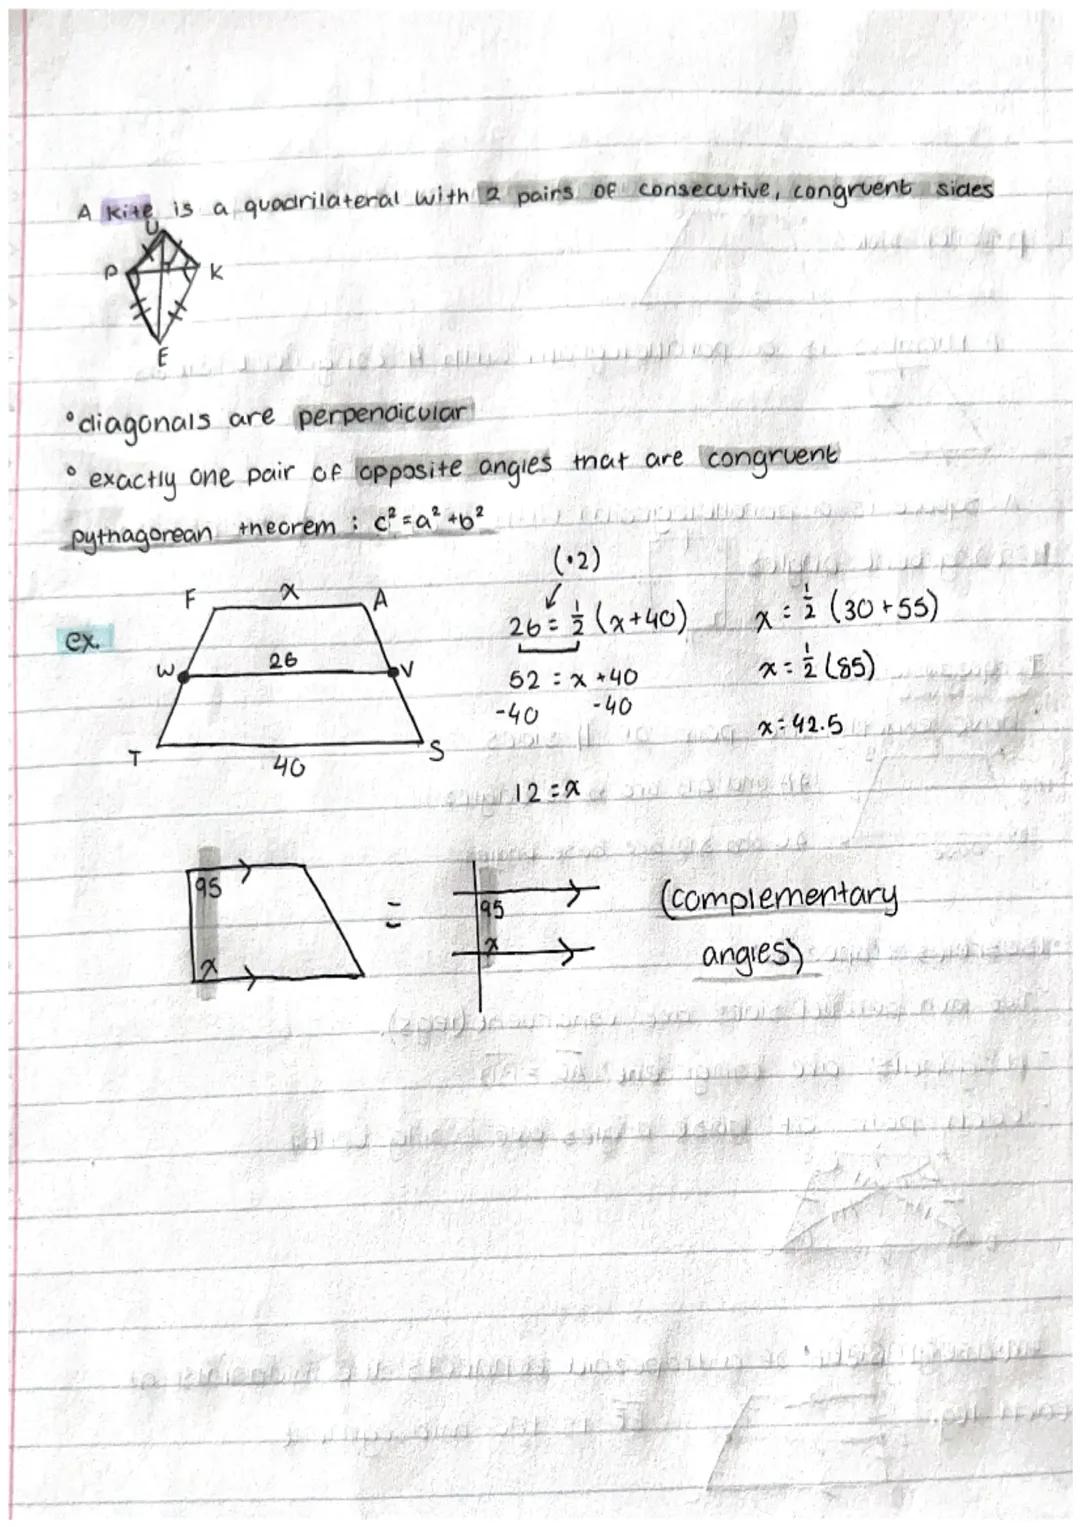 A kite is a quadrilateral with 2 pairs of consecutive, congruent sides
U
P K
E
°diagonals are perpendicular
° exactly one pair of opposite angles that are congruent
pythagorean theorem : c² = a² + b²
(·2)
F x A
ex.
26 = 1/2 (x+40)
x = 1/2 (30+55)
W 26 V
52 = x +40
x = 1/2 (85)
-40 -40
T 40 S
x = 42.5
12 = x
95
x
=
95
x
(complementary
angles)